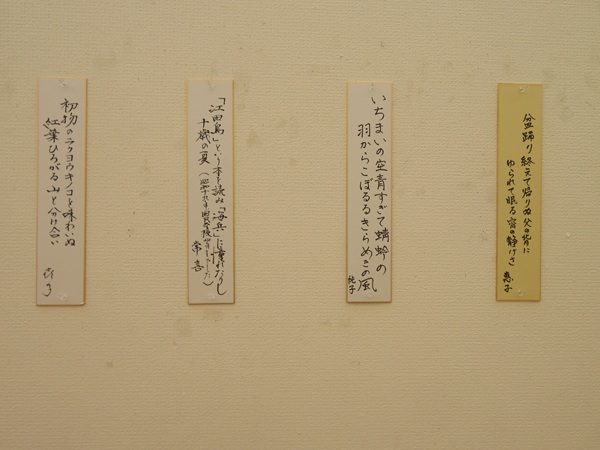 盆踊り終えて帰りぬ父の背に
ゆられて眠る宵の静けさ
恵子
いちまいの空青すぎて蜻蛉の
羽からこぼるるきらめきの風
純子
「江田島」という本を読み「海兵」に憧れたりし
十歳の夏
常喜
初物のラクヨウキノコを味わいぬ
紅葉ひろがる山と分け合い